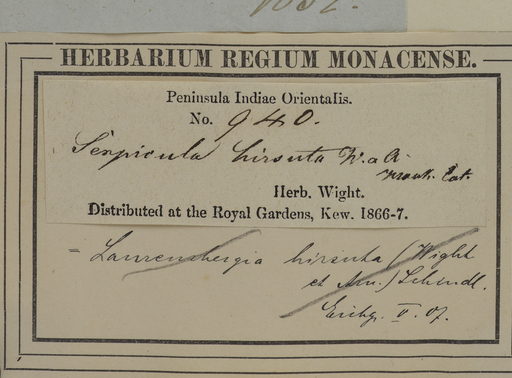 HERBARIUM REGIUM MONACENSE.
Peninsula Indiae Orientalis.
No. 940.
Serpicula hirsuta W. & A.
Herb. Wight.
Distributed at the Royal Gardens, Kew. 1866-7.
= Laurembergia hirsuta (Wight
et Arn.) Schindl.
V. 07.